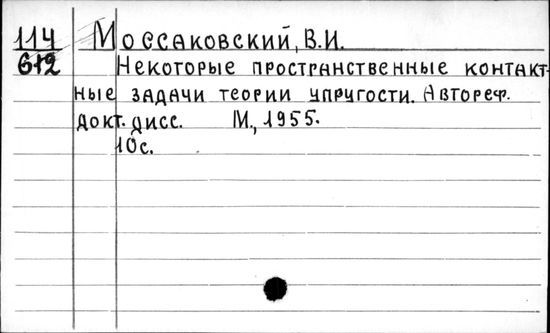 114 Моссаковский, В.И.
612 Некоторые пространственные контакт-
ные задачи теории упругости. Автореф.
докт. дисс. М., 1955.
10с.